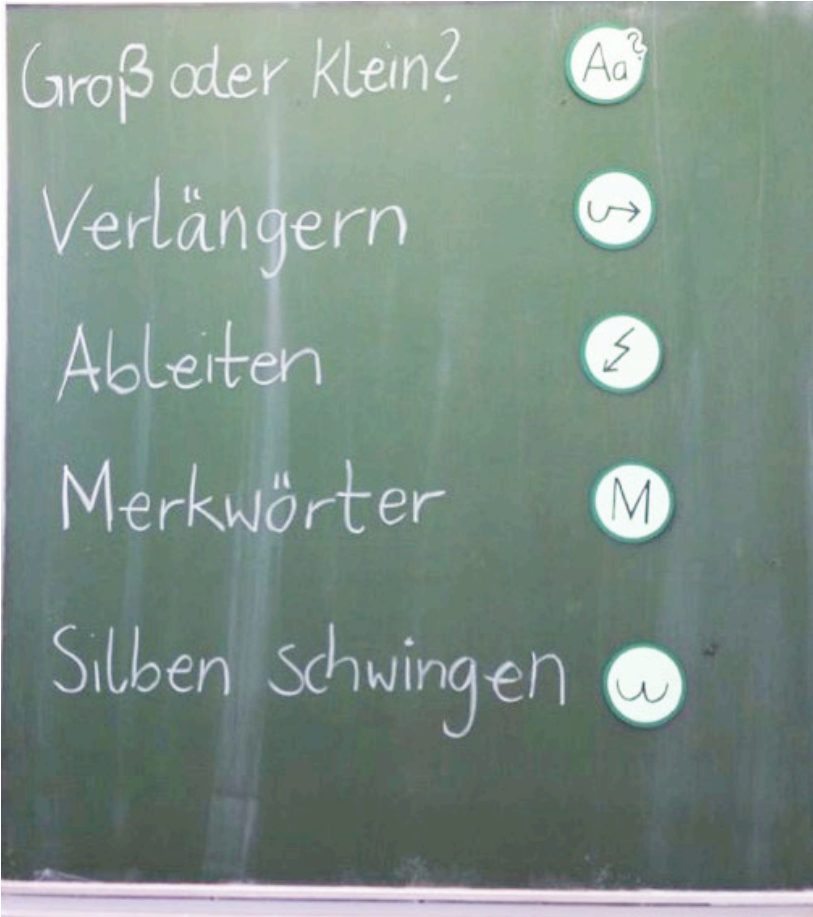 Groß oder klein? Aa?
Verlängern
Ableiten
Merkwörter M
Silben schwingen